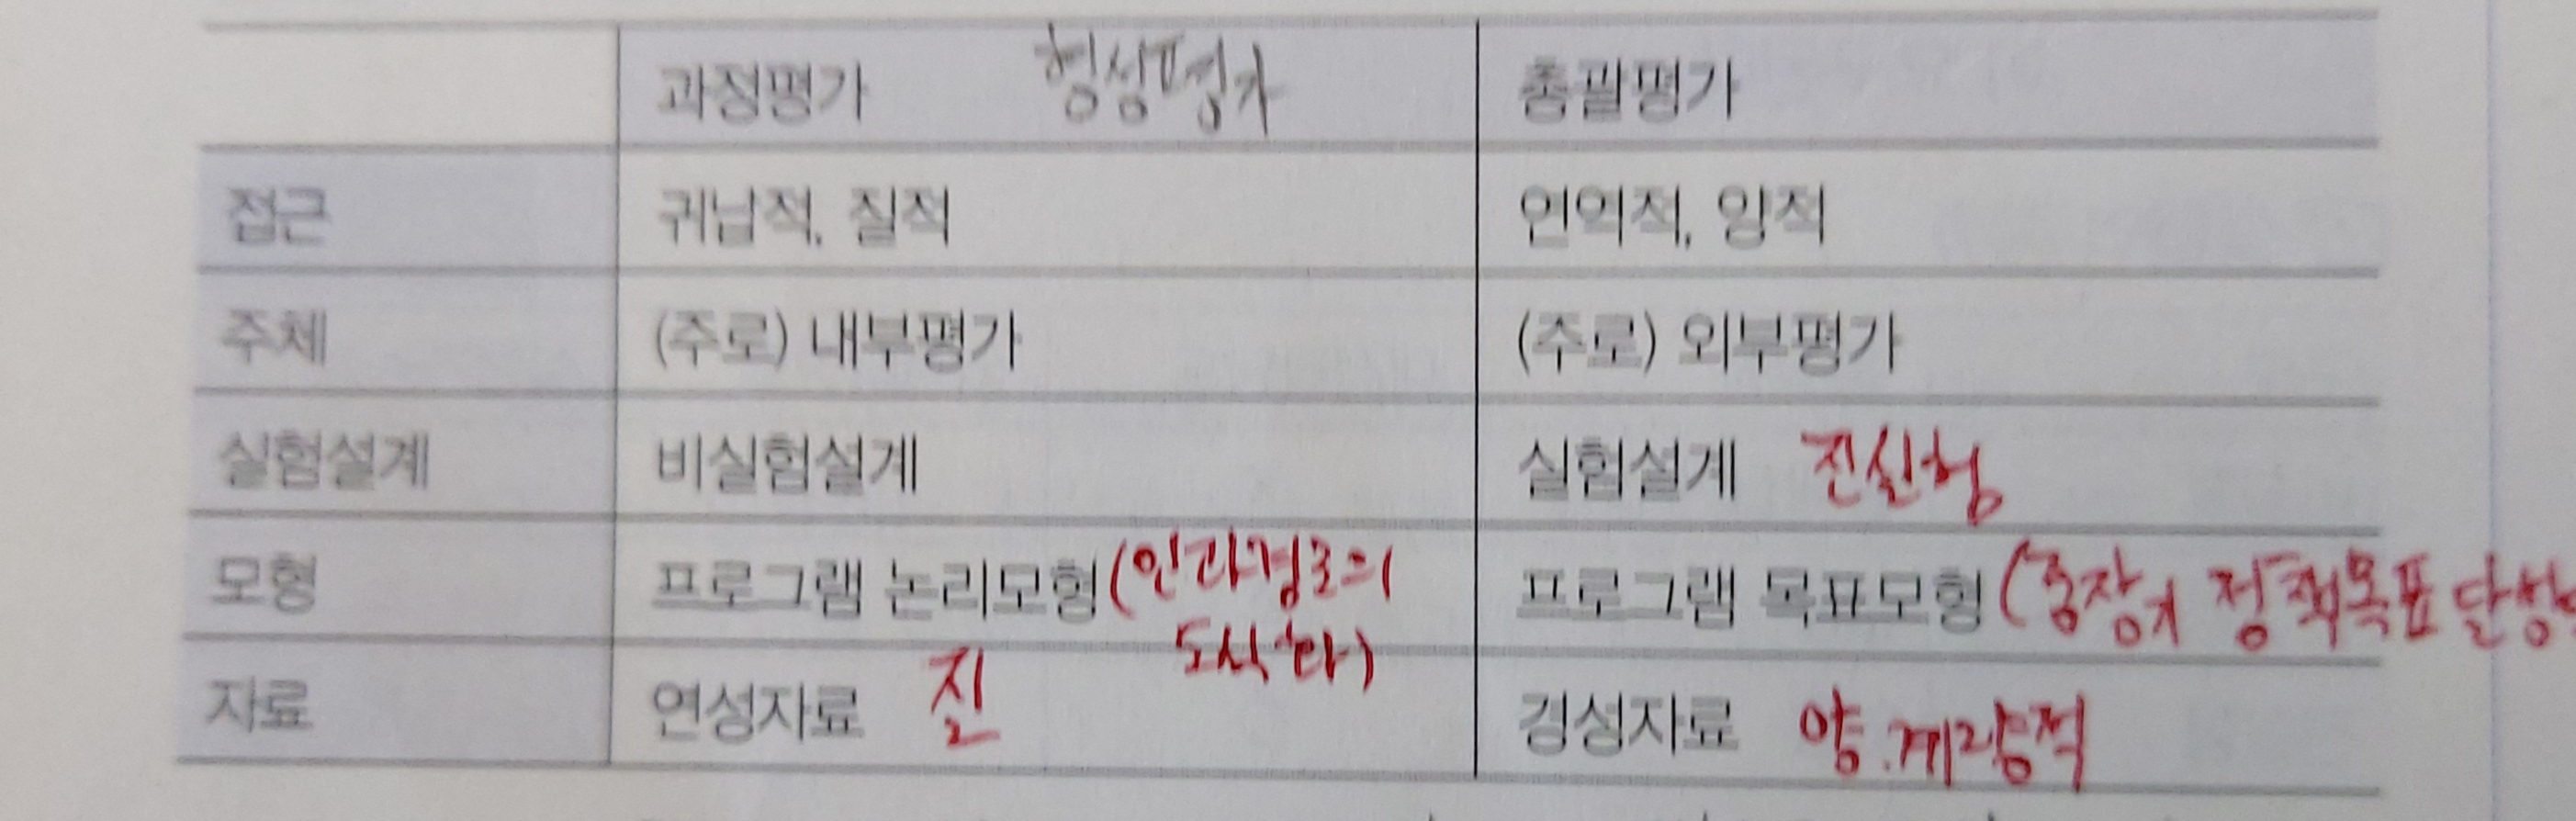 과정평가 형성평가 총괄평가
접근 귀납적, 질적 연역적, 양적
주체 (주로) 내부평가 (주로) 외부평가
실험설계 비실험설계 실험설계 진실험
모형 프로그램 논리모형 (인과경로의 프로그램 목표모형 (중장기 정책목표 달성
도식화)
자료 연성자료 질 경성자료 양.계량적